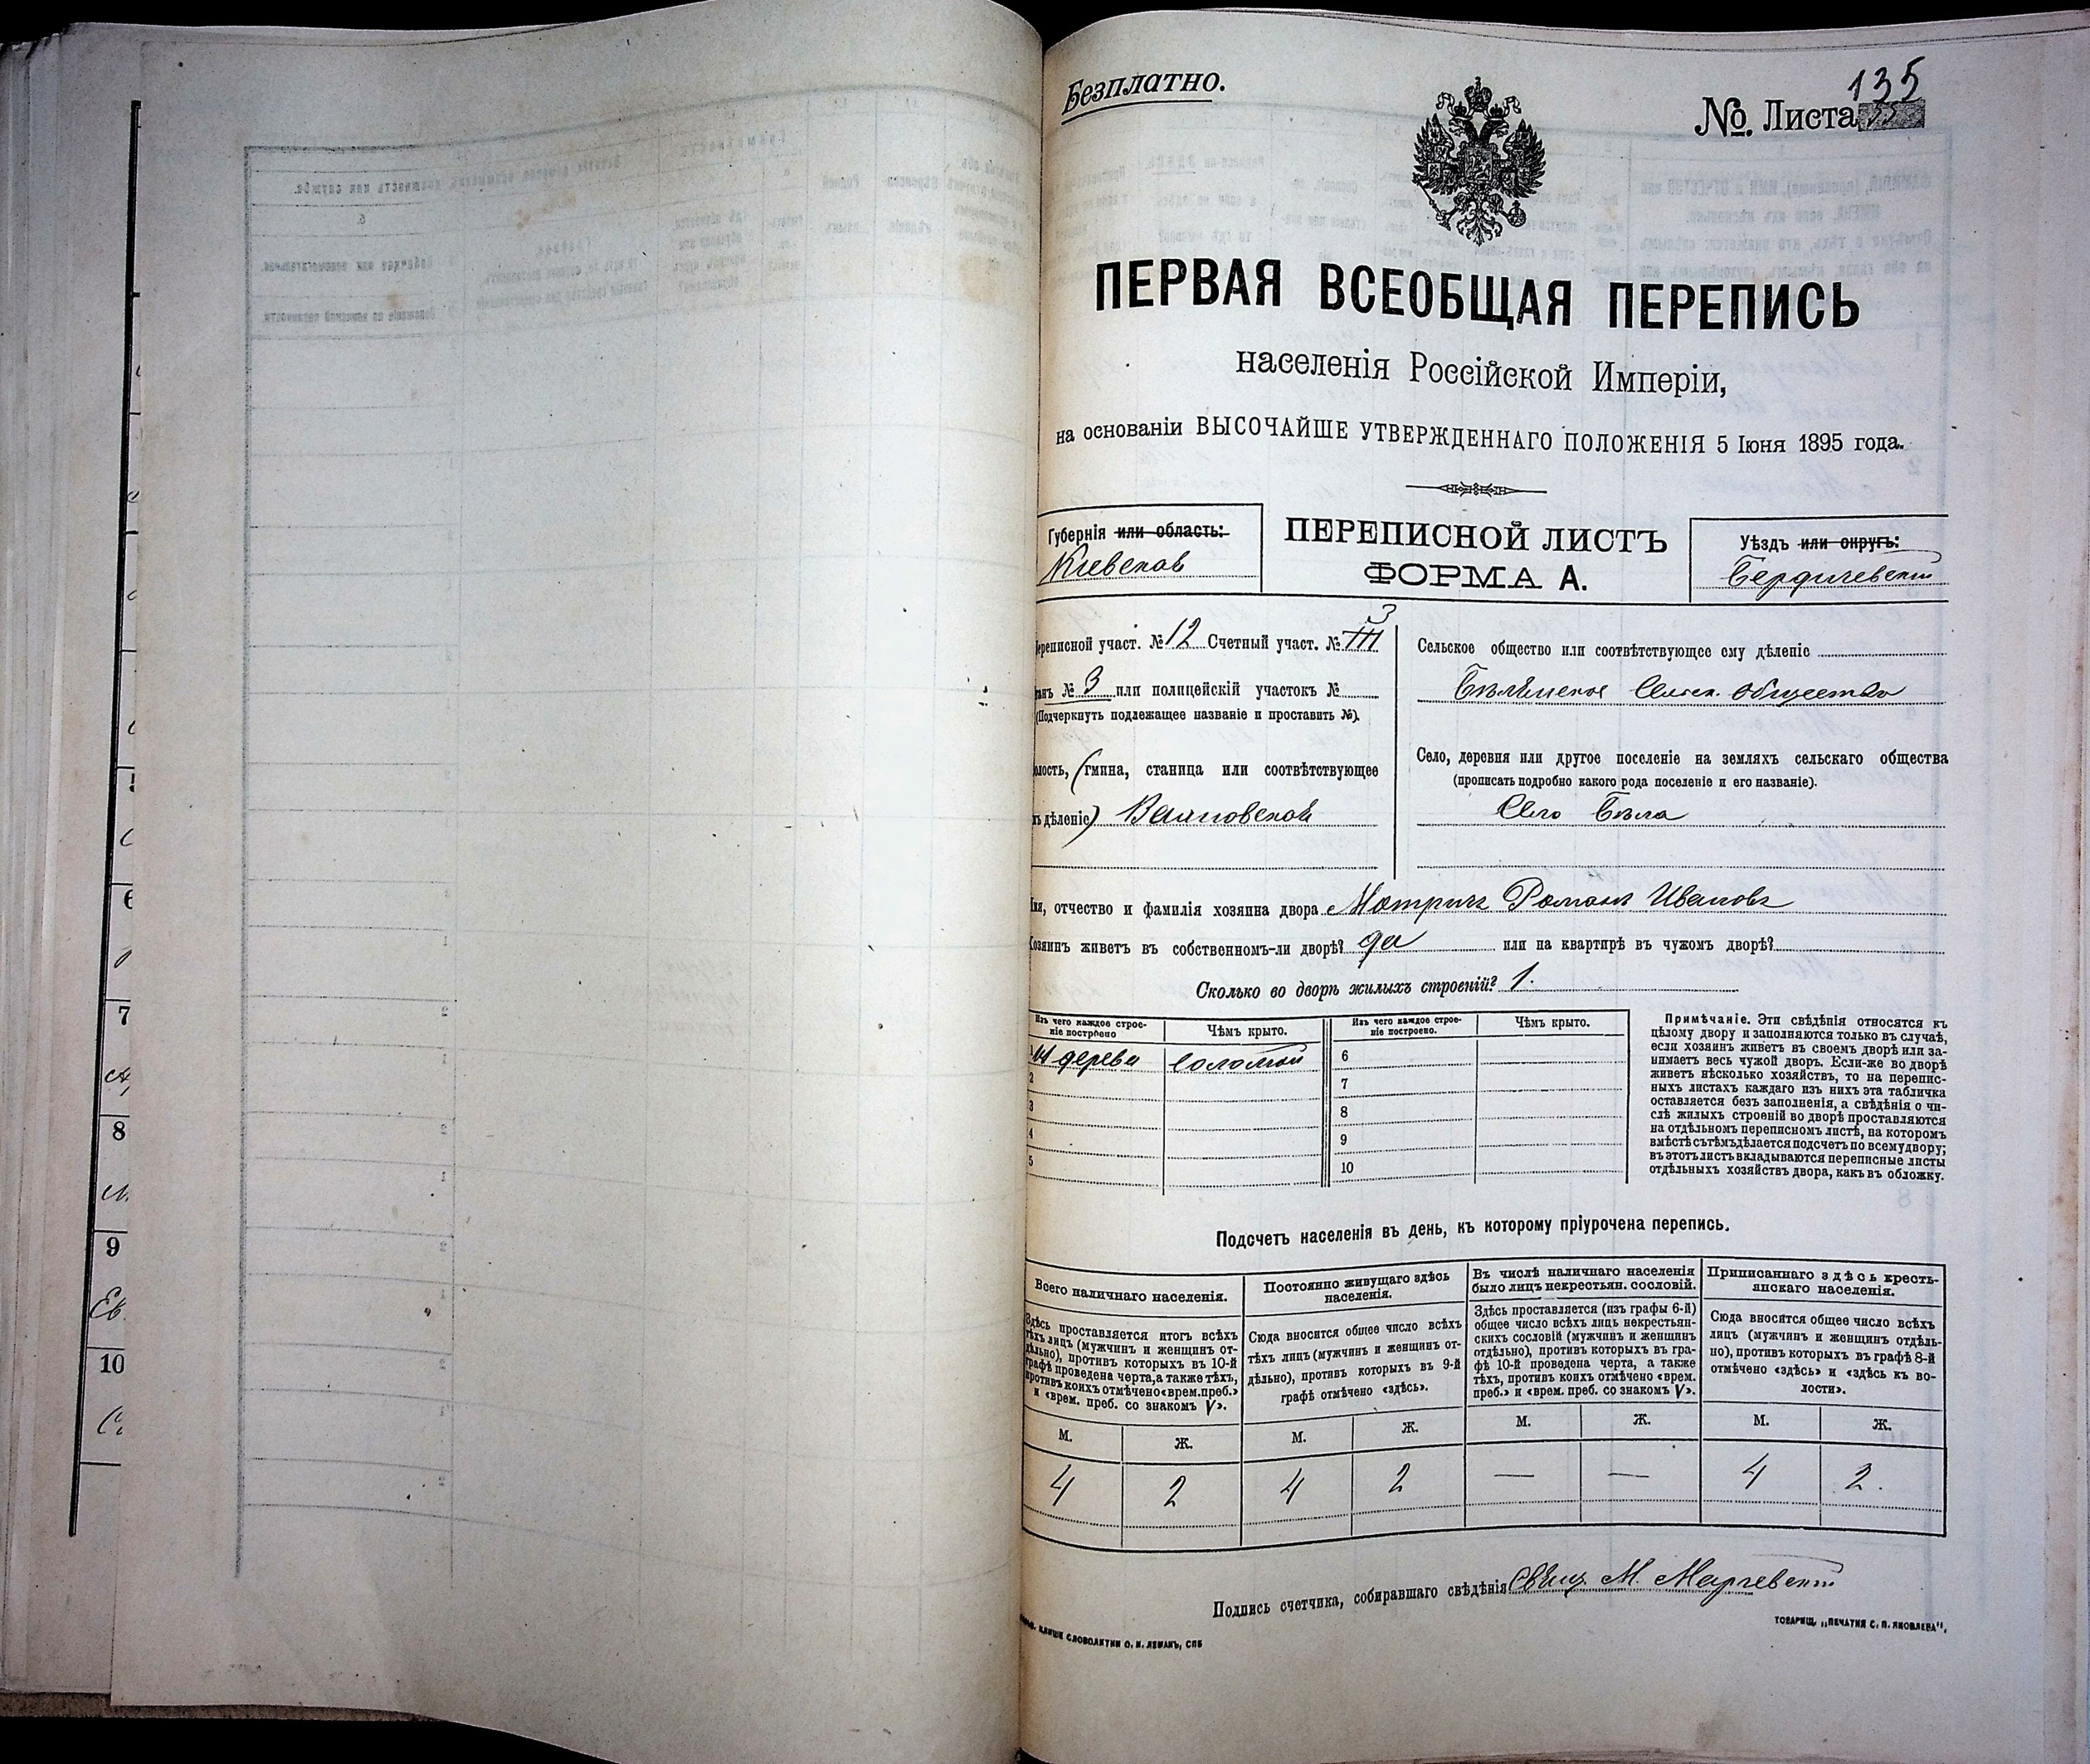 Безплатно.
135
№. Листа
ПЕРВАЯ ВСЕОБЩАЯ ПЕРЕПИСЬ
населенія Россійской Имперіи,
на основаніи ВЫСОЧАЙШЕ УТВЕРЖДЕННАГО ПОЛОЖЕНІЯ 5 Іюня 1895 года.
Губернія или область:
Кіевская
ПЕРЕПИСНОЙ ЛИСТЪ
ФОРМА А.
Уѣздъ или округъ:
Бердичевскій
ереписной участ. № 12 Счетный участ. № III 3
танъ № 3 или полицейскій участокъ №
(Подчеркнуть подлежащее названіе и проставить №).
олость, (гмина, станица или соотвѣтствующее
ъ дѣленіе)
Сельское общество или соотвѣтствующее ему дѣленіе
Сельск. Общество
Село, деревня или другое поселеніе на земляхъ сельскаго общества
(прописать подробно какого рода поселеніе и его названіе).
Село Бѣла
мя, отчество и фамилія хозяина двора Мотричъ Романъ Ивановъ
Хозяинъ живетъ въ собственномъ-ли дворѣ? да или на квартирѣ въ чужомъ дворѣ?
Сколько во дворѣ жилыхъ строеній? 1.
Изъ чего каждое строе-
ніе построено
Чѣмъ крыто.
Изъ чего каждое строе-
ніе построено.
Чѣмъ крыто.
1 дерева соломой 6
2 7
3 8
4 9
5 10
Примѣчаніе. Эти свѣдѣнія относятся къ
цѣлому двору и заполняются только въ случаѣ,
если хозяинъ живетъ въ своемъ дворѣ или за-
нимаетъ весь чужой дворъ. Если-же во дворѣ
живетъ нѣсколько хозяйствъ, то на перепис-
ныхъ листахъ каждаго изъ нихъ эта табличка
оставляется безъ заполненія, а свѣдѣнія о чи-
слѣ жилыхъ строеній во дворѣ проставляются
на отдѣльномъ переписномъ листѣ, на которомъ
вмѣстѣ съ тѣмъ дѣлается подсчетъ по всему двору;
въ этотъ листъ вкладываются переписные листы
отдѣльныхъ хозяйствъ двора, какъ въ обложку.
Подсчетъ населенія въ день, къ которому пріурочена перепись.
Всего наличнаго населенія.
Здѣсь проставляется итогъ всѣхъ
тѣхъ лицъ (мужчинъ и женщинъ от-
дѣльно), противъ которыхъ въ 10-й
графѣ проведена черта, а также тѣхъ,
противъ коихъ отмѣчено «врем. преб.»
и «врем. преб. со знакомъ V».
Постоянно живущаго здѣсь
населенія.
Сюда вносится общее число всѣхъ
тѣхъ лицъ (мужчинъ и женщинъ от-
дѣльно), противъ которыхъ въ 9-й
графѣ отмѣчено «здѣсь».
Въ числѣ наличнаго населенія
было лицъ некрестьян. сословій.
Здѣсь проставляется (изъ графы 6-й)
общее число всѣхъ лицъ некрестьян-
скихъ сословій (мужчинъ и женщинъ
отдѣльно), противъ которыхъ въ гра-
фѣ 10-й проведена черта, а также
тѣхъ, противъ коихъ отмѣчено «врем.
преб.» и «врем. преб. со знакомъ V».
Приписаннаго здѣсь кресть-
янскаго населенія.
Сюда вносится общее число всѣхъ
лицъ (мужчинъ и женщинъ отдѣль-
но), противъ которыхъ въ графѣ 8-й
отмѣчено «здѣсь» и «здѣсь къ во-
лости».
М. Ж. М. Ж. М. Ж. М. Ж.
4 2 4 2 — — 4 2.
Подпись счетчика, собиравшаго свѣдѣнія Свящ. М.
СЛОВОЛИТНИ О. И. ЛЕМАНЪ, СПБ
ТОВАРИЩ. „ПЕЧАТНЯ С. П. ЯКОВЛЕВА",
6
7
8
9
10